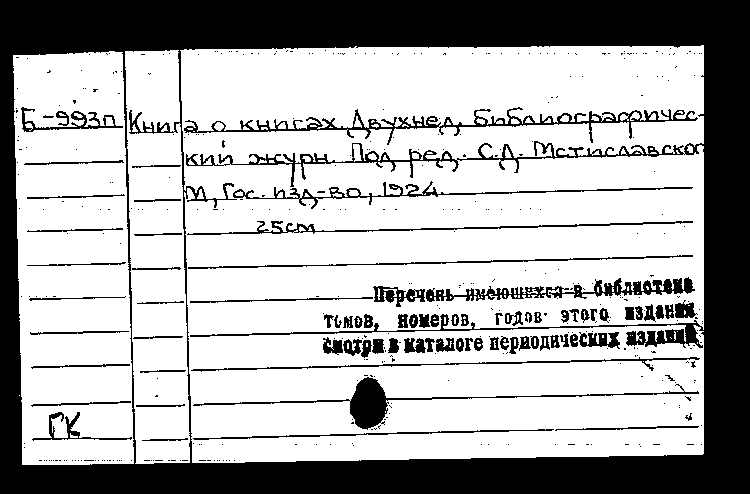 Б-993п Книга о книгах. Двухнед. библиографичес-
кий журн. Под ред. С.Д. Мстиславског
М, Гос. изд-во, 1924.
25см
Перечень имеющихся в библиотеке
томов, номеров, годов этого издания
смотри в каталоге периодических изданий
ГК